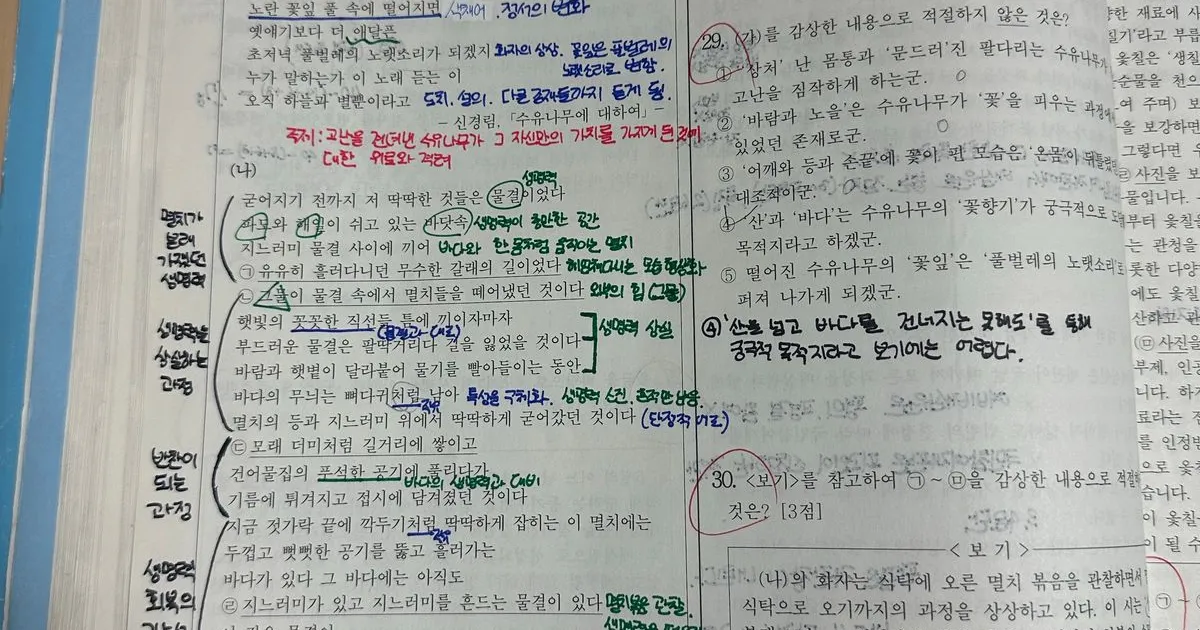 노란 꽃잎 풀 속에 떨어지면 색채어. 정서의 변화
옛얘기보다 더 애달픈
초저녁 풀벌레의 노랫소리가 되겠지 화자의 상상. 꽃잎은 풀벌레의
노랫소리로 변함.
누가 말하는가 이 노래 듣는 이
오직 하늘과 별뿐이라고 도치. 설의.
- 신경림, 「수유나무에 대하여」 -
주제: 고난을 견뎌낸 수유나무가 그 자신만의 가치를 가지게 된 것에
대한 위로와 격려
(나)
생명력
굳어지기 전까지 저 딱딱한 것들은 물결이었다
파도와 해일이 쉬고 있는 바닷속 생명력이 충만한 공간
지느러미 물결 사이에 끼어 바다와 한 몸처럼 움직이는 멸치
㉠ 유유히 흘러다니던 무수한 갈래의 길이었다 헤엄쳐다니는 모습 형상화
멸치가
본래
가졌던
생명력
㉡ 그물이 물결 속에서 멸치들을 떼어냈던 것이다 외부의 힘 (그물)
햇빛의 꼿꼿한 직선들 틈에 끼이자마자
(물결과 대조)
부드러운 물결은 팔딱거리다 길을 잃었을 것이다
생명력 상실
바람과 햇볕이 달라붙어 물기를 빨아들이는 동안
바다의 무늬는 뼈다귀처럼 남아 생명력 소진. 흔적만 남음
멸치의 등과 지느러미 위에서 딱딱하게 굳어갔던 것이다 (단정적 어조)
생명력을
상실하는
과정
㉢ 모래 더미처럼 길거리에 쌓이고
건어물집의 푸석한 공기에 풀리다가
바다의 생명력과 대비
기름에 튀겨지고 접시에 담겨졌던 것이다
반찬이
되는
과정
지금 젓가락 끝에 깍두기처럼 딱딱하게 잡히는 이 멸치에는
두껍고 뻣뻣한 공기를 뚫고 흘러가는
바다가 있다 그 바다에는 아직도
㉣ 지느러미가 있고 지느러미를 흔드는 물결이 있다 멸치볶음 관찰.
생명력
회복의
29. (가)를 감상한 내용으로 적절하지 않은 것은?
① '상처' 난 몸통과 '문드러'진 팔다리는 수유나무가
고난을 짐작하게 하는군. ○
② '바람과 노을'은 수유나무가 '꽃'을 피우는 과정에
있었던 존재로군. ○
③ '어깨와 등과 손끝'에 꽃이 핀 모습은 '온몸'이 뒤틀린
대조적이군. ○
④ '산'과 '바다'는 수유나무의 '꽃향기'가 궁극적으로
목적지라고 하겠군.
⑤ 떨어진 수유나무의 '꽃잎'은 '풀벌레의 노랫소리'
퍼져 나가게 되겠군.
④ '산을 넘고 바다를 건너지는 못해도'를 통해
궁극적 목적지라고 보기에는 어렵다.
30. <보기>를 참고하여 ㉠~㉤을 감상한 내용으로 적절
것은? [3점]
<보 기>
(나)의 화자는 식탁에 오른 멸치 볶음을 관찰하면서
식탁으로 오기까지의 과정을 상상하고 있다. 이 시는
한 재료에 사
칠기'라고 부릅
옻칠은 '생칠
순물을 천으
여 주며) 보
을 보강하면
그렇다면 우
㉣ 사진을 보
물입니다.
부터 옻칠
는 관청을
롯한 다양
에도 옻칠
산하고 관
㉤ 사진을
부제, 인공
니다. 하
료라는 건
를 인정받
으로 옻칠
습니다.
이 옻칠
될 수
㉠ ~